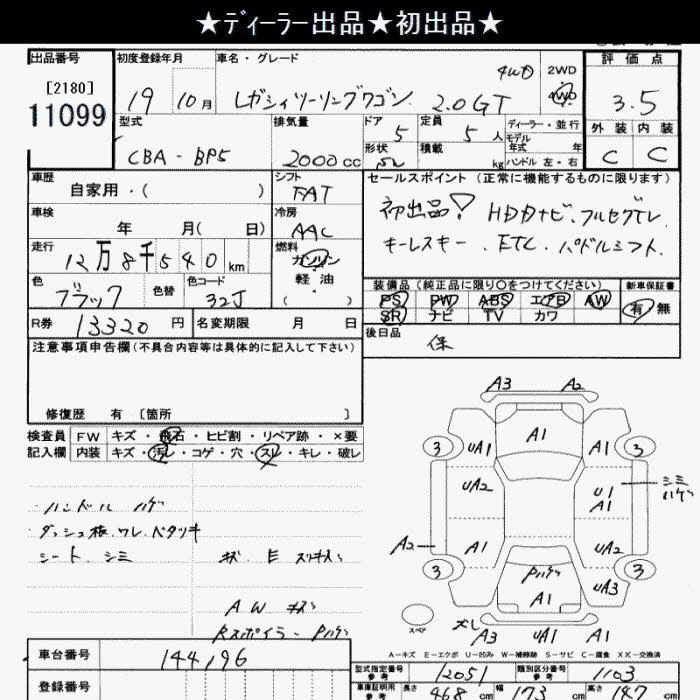 ★ディーラー出品★初出品★
出品番号 初度登録年月 車名・グレード 評価点
[2180]
11099
19 10月 レガシィツーリングワゴン 2.0GT 4WD 2WD 4WD 3.5
型式 排気量 ドア 定員 ディーラー・並行 外装 内装
CBA-BP5 2000cc 5 5人 モデル年式 年 C C
形状 積載 kg ハンドル 左・右
車歴 シフト セールスポイント (正常に機能するものに限ります)
自家用・( ) FAT
初出品! HDDナビ.フルセグTV.
車検 冷房
年 月( 日) AAC
キーレスキー.ETC.パドルシフト.
走行 燃料
12万8千540km ガソリン・軽油・( )
色 色替 色コード 装備品 (純正品に限り○をつけてください) 新車保証書
ブラック 32J PS PW ABS エアB AW 有・無
R券 13320円 名変期限 月 日 SR ナビ TV カワ
注意事項申告欄 (不具合内容等は具体的に記入して下さい) 後日品
保
修復歴 有 [箇所 ]
検査員 FW キズ・飛石・ヒビ割・リペア跡・×要
記入欄 内装 キズ・汚レ・コゲ・穴・スレ・キレ・破レ
A3 A2
3 UA1 A1 A1 3
UA2 U1 A1 シミ ハゲ
A2 A1 UA2
3 Pハゲ A1 UA3 3
スペア
A3 UA1 A1
ハンドル ハゲ
ダッシュ板.ワレ.ベタツキ
シート.シミ
AW キズ
Rスポイラー Pハゲ
A-キズ E-エクボ U-凹み W-補修跡 S-サビ C-腐食 XX-交換済
車台番号 144196
型式指定番号 参考 12051 類別区分番号 参考 1103
登録番号
車庫証明用 参考 長さ 468cm 幅 173cm 高さ 147cm